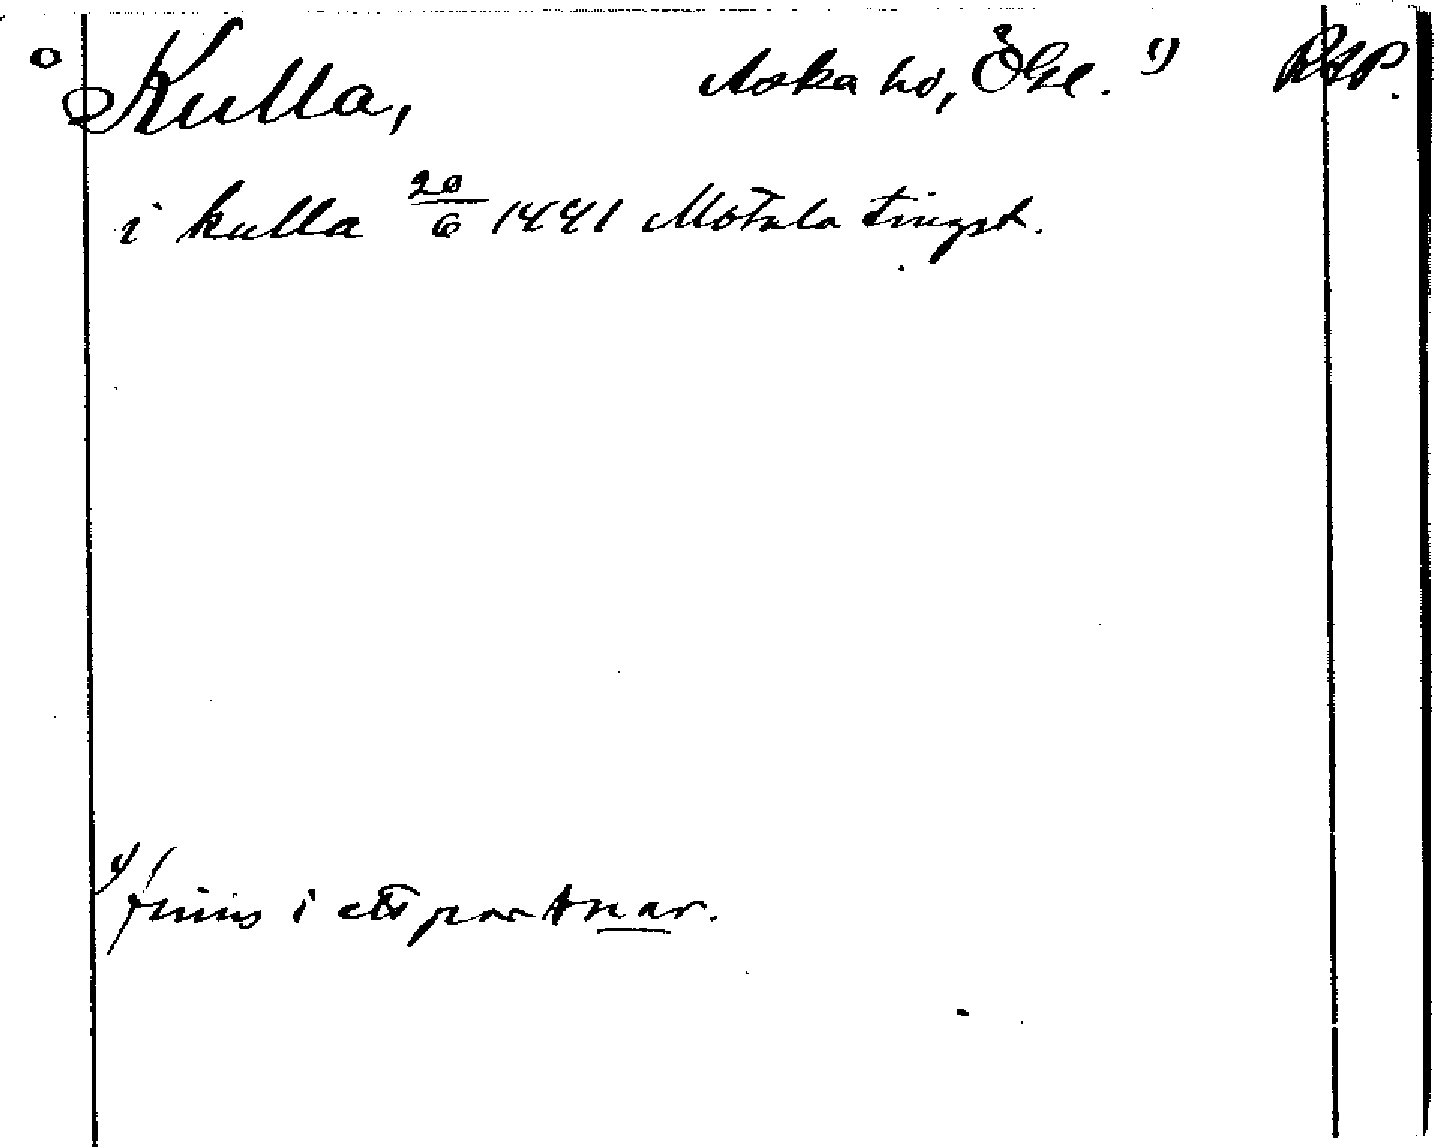 Kulla, Aska hd, Ögl. 1) RAP.
i kulla 20/6 1441 Motala tingst.
1) finns i ett par snar.